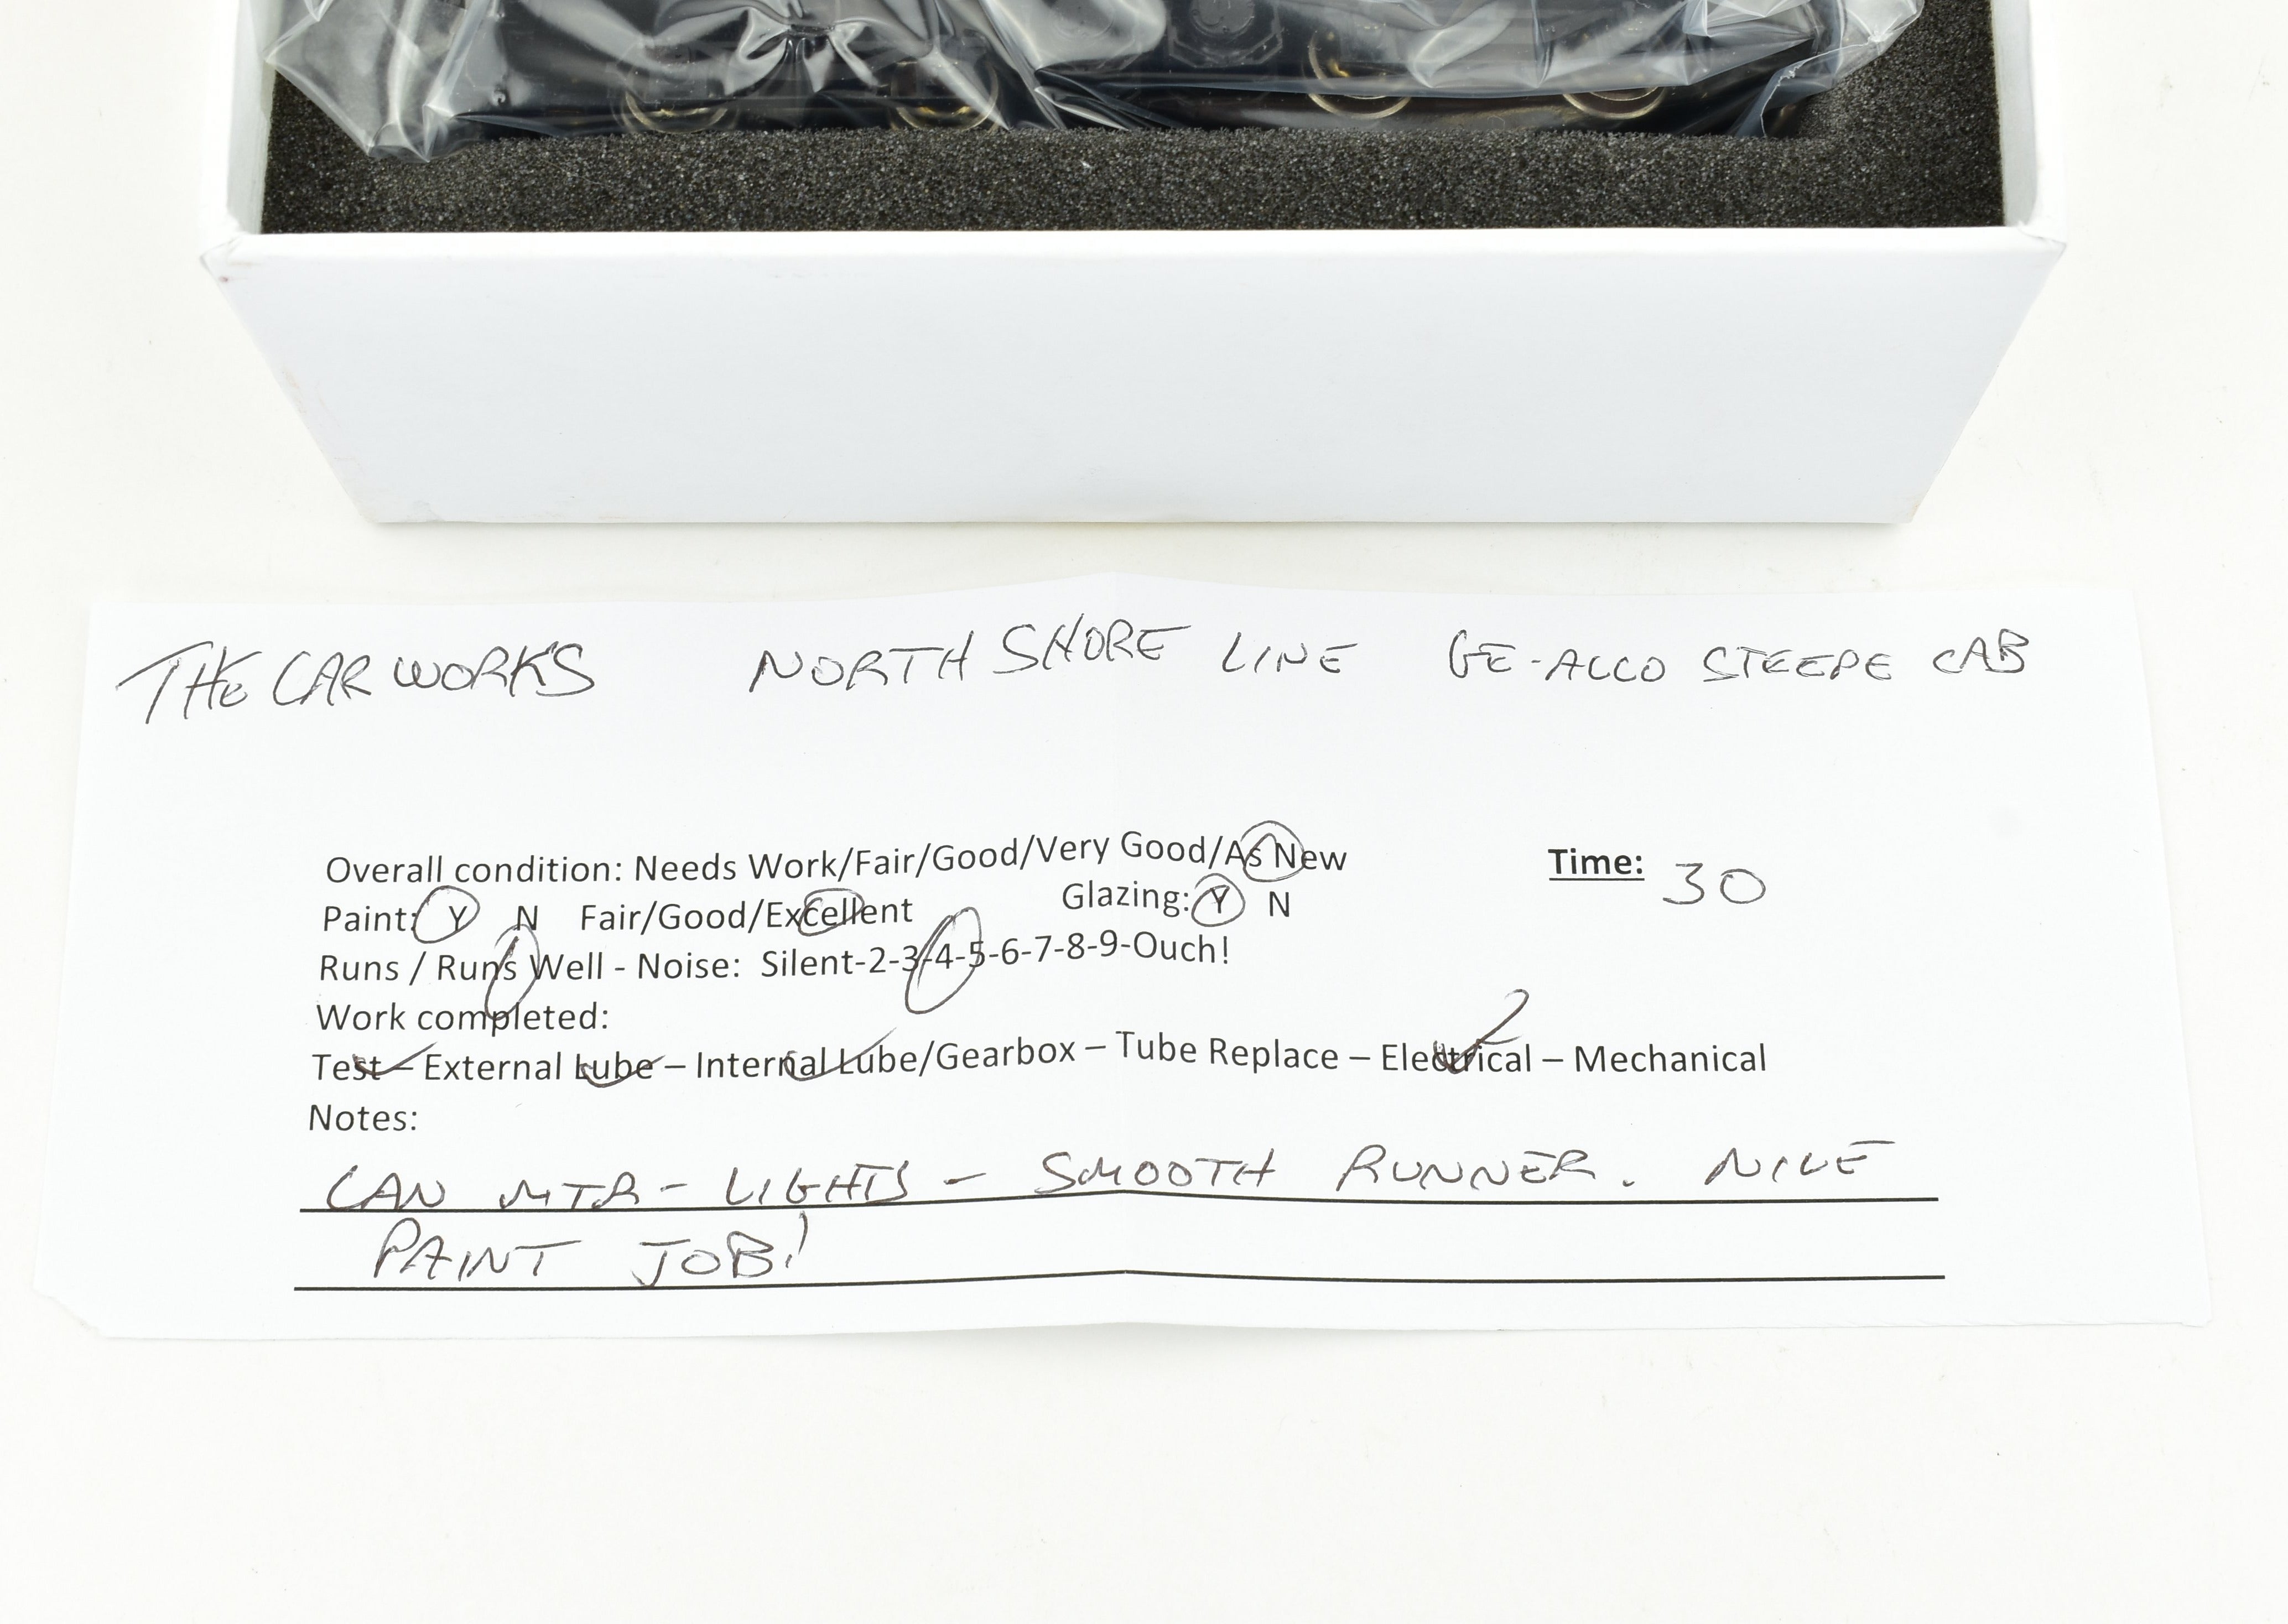 THE CAR WORKS NORTH SHORE LINE GE-ALCO STEEPE CAB
Overall condition: Needs Work/Fair/Good/Very Good/As New Time: 30
Paint: Y N Fair/Good/Excellent Glazing: Y N
Runs / Runs Well - Noise: Silent-2-3-4-5-6-7-8-9-Ouch!
Work completed:
Test – External Lube – Internal Lube/Gearbox – Tube Replace – Electrical – Mechanical
Notes:
CAN MTR - LIGHTS - SMOOTH RUNNER. NICE
PAINT JOB!